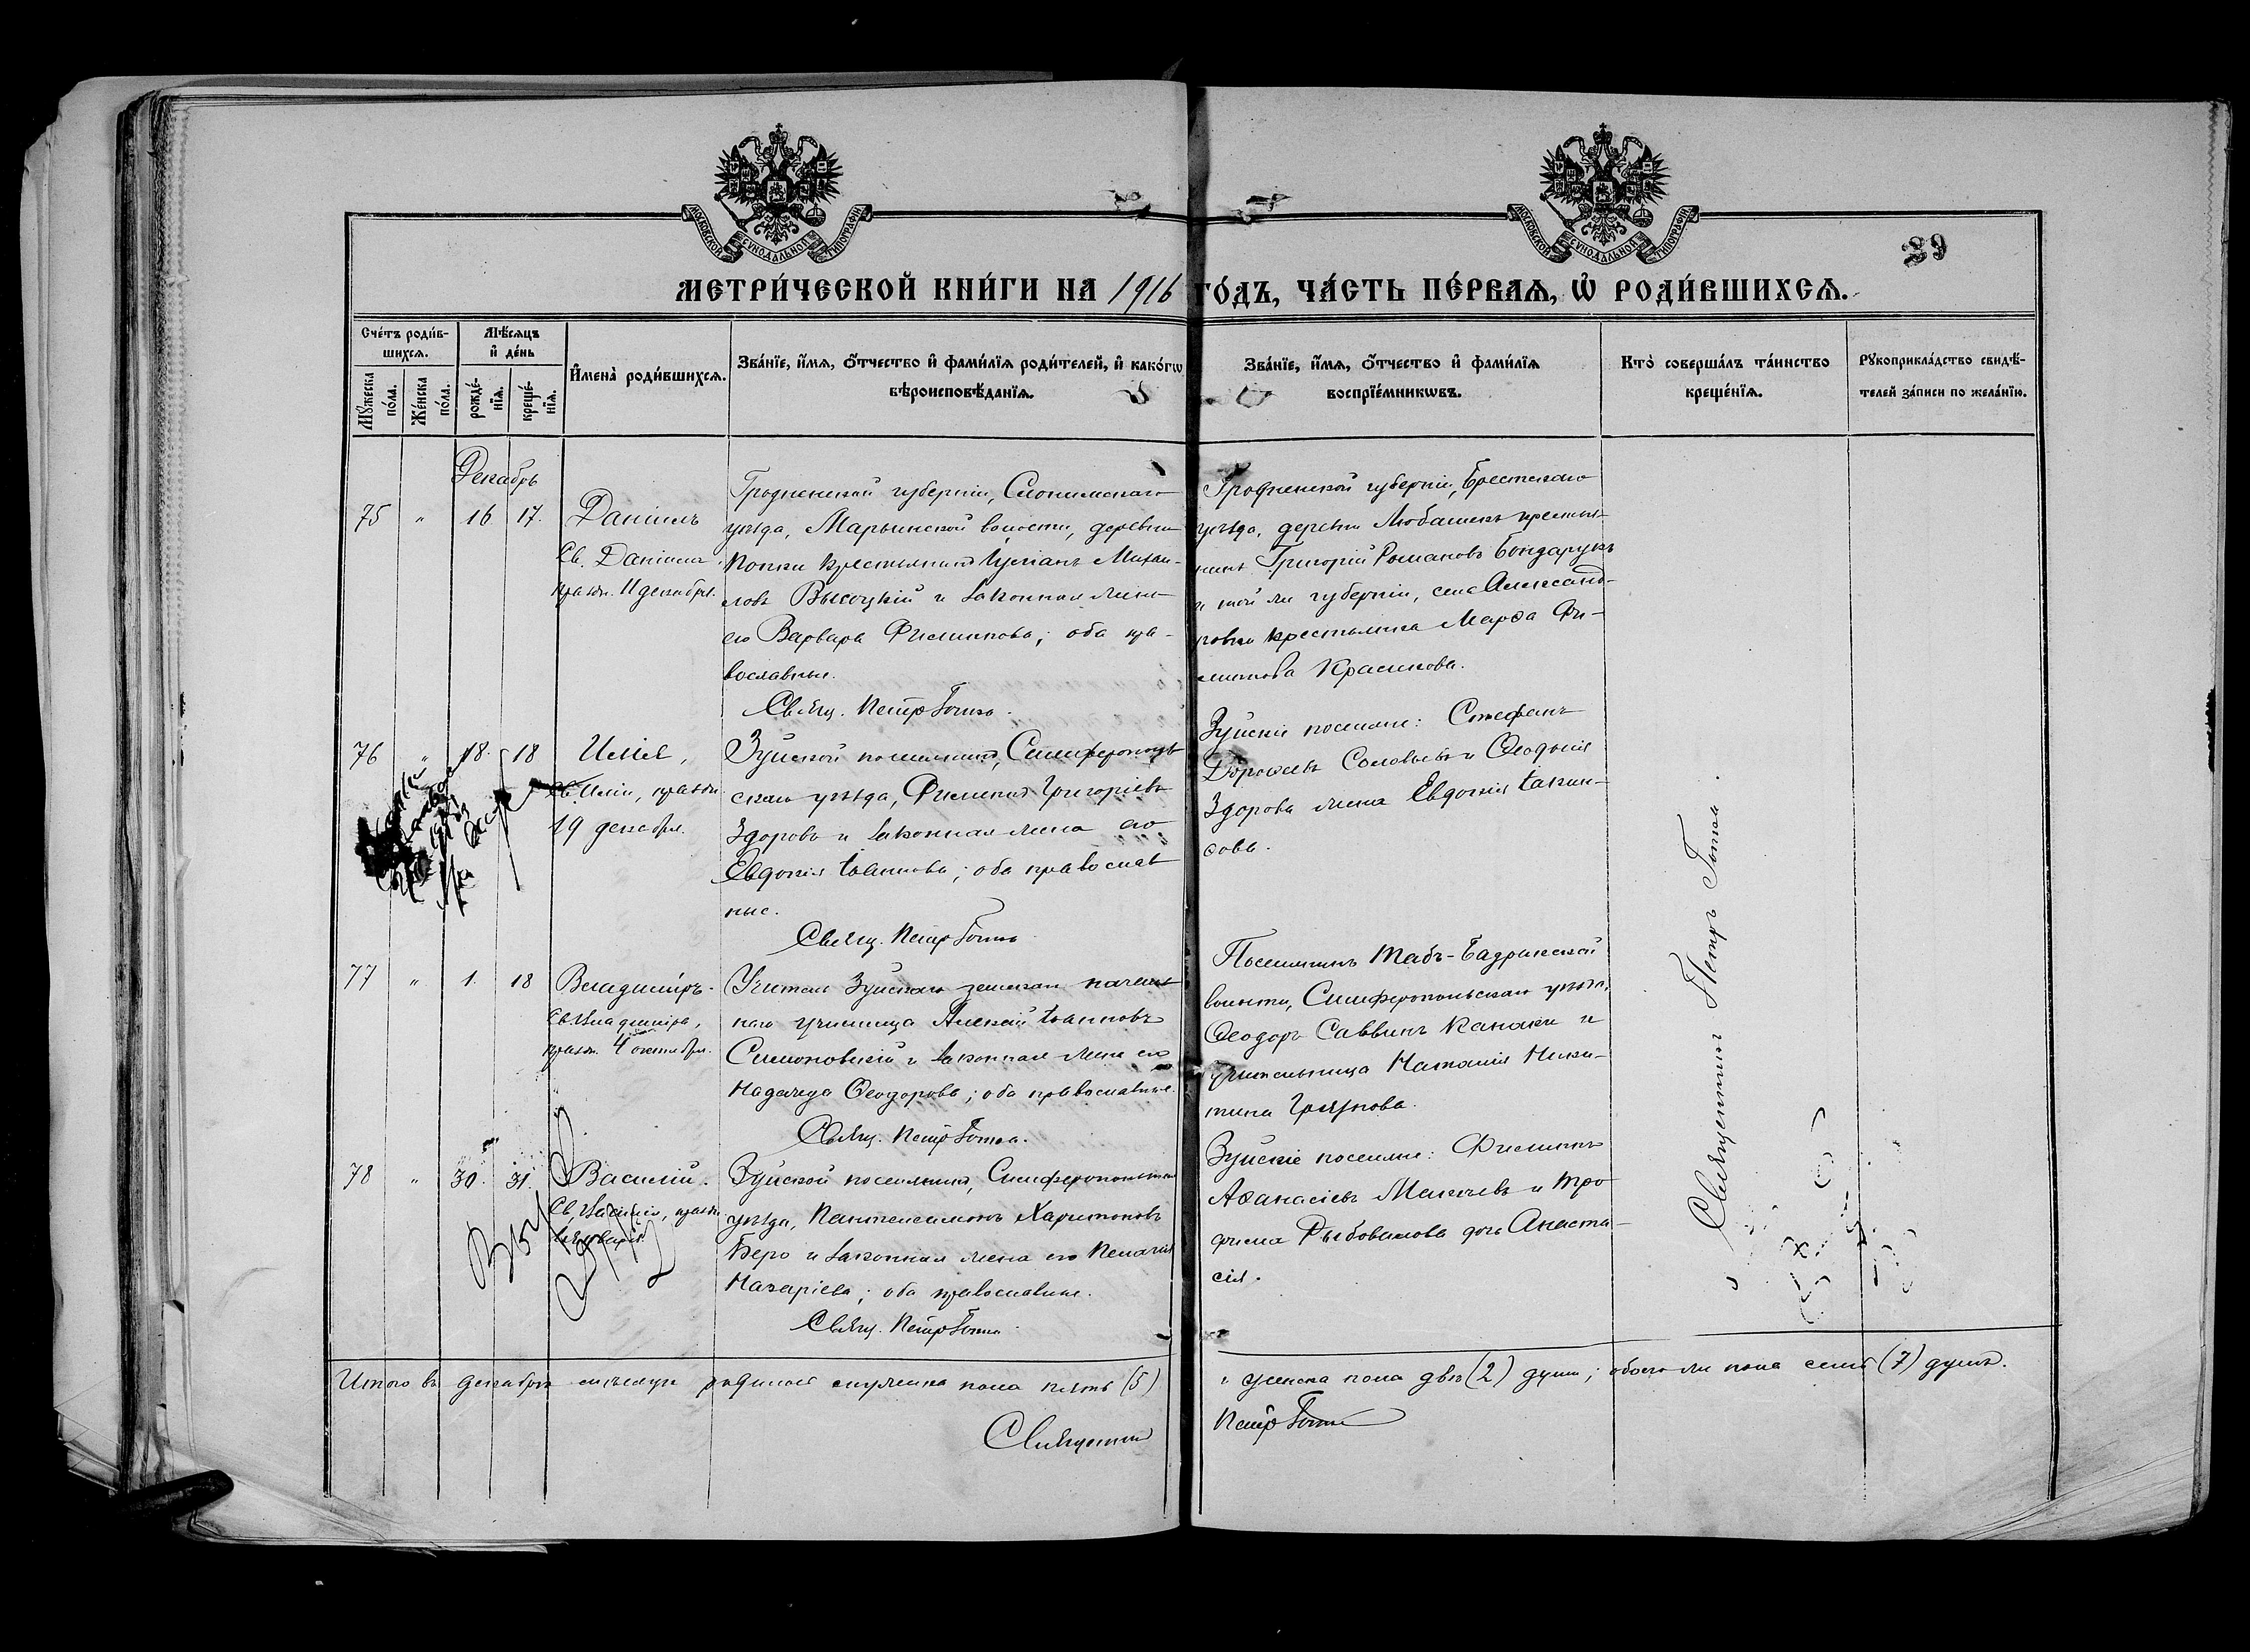 МОСКОВСКОЙ СѴНОДАЛЬНОЙ ТИПОГРАФІИ
МОСКОВСКОЙ СѴНОДАЛЬНОЙ ТИПОГРАФІИ
39
МЕТРИ́ЧЕСКОЙ КНИ́ГИ НА 1916 ГО́ДЪ, ЧА́СТЬ ПЕ́РВАѦ, Ѡ҆ РОДИ́ВШИХСѦ.
Сче́тъ роди́в-
шихсѧ.
Мѣ́сѧцъ
и҆ де́нь
Мꙋ́жеска
по́ла.
Же́нска
по́ла.
рожде́-
нїѧ.
креще́-
нїѧ.
И҆мена̀ роди́вшихсѧ.
Зва́нїе, и҆́мѧ, ѻ҆́тчество и҆ фами́лїѧ роди́телей, и҆ како́гѡ
вѣроисповѣ́данїѧ.
Зва́нїе, и҆́мѧ, ѻ҆́тчество и҆ фами́лїѧ
воспрїе́мникѡвъ.
Кто̀ соверша́лъ та́инство
креще́нїѧ.
Рꙋкоприкла́дство свидѣ́-
телей за́писи по жела́нїю.
Декабрь
75 " 16 17.
Даніилъ
Св. Даніила,
празн. 11 декабря.
Гродненской губерніи, Слонимскаго
уѣзда, Марьинской волости, деревни
Попки крестьянинъ Іуліанъ Михаи-
ловъ Высоцкій и законная жена
его Варвара Филиппова; оба пра-
вославные.
Свящ. Петръ Готка.
Гродненской губерніи, Брестскаго
уѣзда, деревни Любашекъ крестья-
нинъ Григорій Романовъ Бондарукъ
и той же губерніи, села Александ-
ровки крестьянка Марѳа Фи-
липпова Красикова.
76 " 18. 18
Илія,
Св. Иліи, празн.
19 декабря.
Зуйской поселянинъ, Симферополь
скаго уѣзда, Филиппъ Григоріевъ
Здоровъ и законная жена его
Евдокія Іванновна; оба православ
ные.
Свящ. Петръ Готка
Зуйскіе поселяне: Стефанъ
Дороѳеевъ Соловьевъ и Ѳеодосія
Здорова жена Евдокія
77 " 1. 18
Владиміръ.
Св. Владиміра,
празн. 4 октября.
Учитель Зуйскаго земскаго началь
наго училища Алексѣй Іоанновъ
Симоновскій и законная жена его
Надежда Ѳеодорова; оба православные.
Свящ. Петръ Готка.
Поселянинъ Табъ-Бадракской
волости, Симферопольскаго уѣзда,
Ѳеодоръ Саввинъ Канаки и
учительница Наталія Ники-
тина
78 " 30. 31.
Василій.
Св. Василія, празн.
1 января.
Зуйской поселянинъ, Симферопольскаго
уѣзда, Пантелеимонъ Харитоновъ
Беро и законная жена его Пелагія
Назаріева; оба православные.
Свящ. Петръ Готка
Зуйскіе поселяне: Филиппъ
Аѳанасіевъ и Тро
фима Рыбовалова дочь Анаста-
сія.
Священникъ Петръ Готка.
Итого въ декабрѣ мѣсяцѣ родилось мужеска пола пять (5)
и женска пола двѣ (2) души; обоего же пола семь (7) душъ.
Священникъ
Петръ Готка